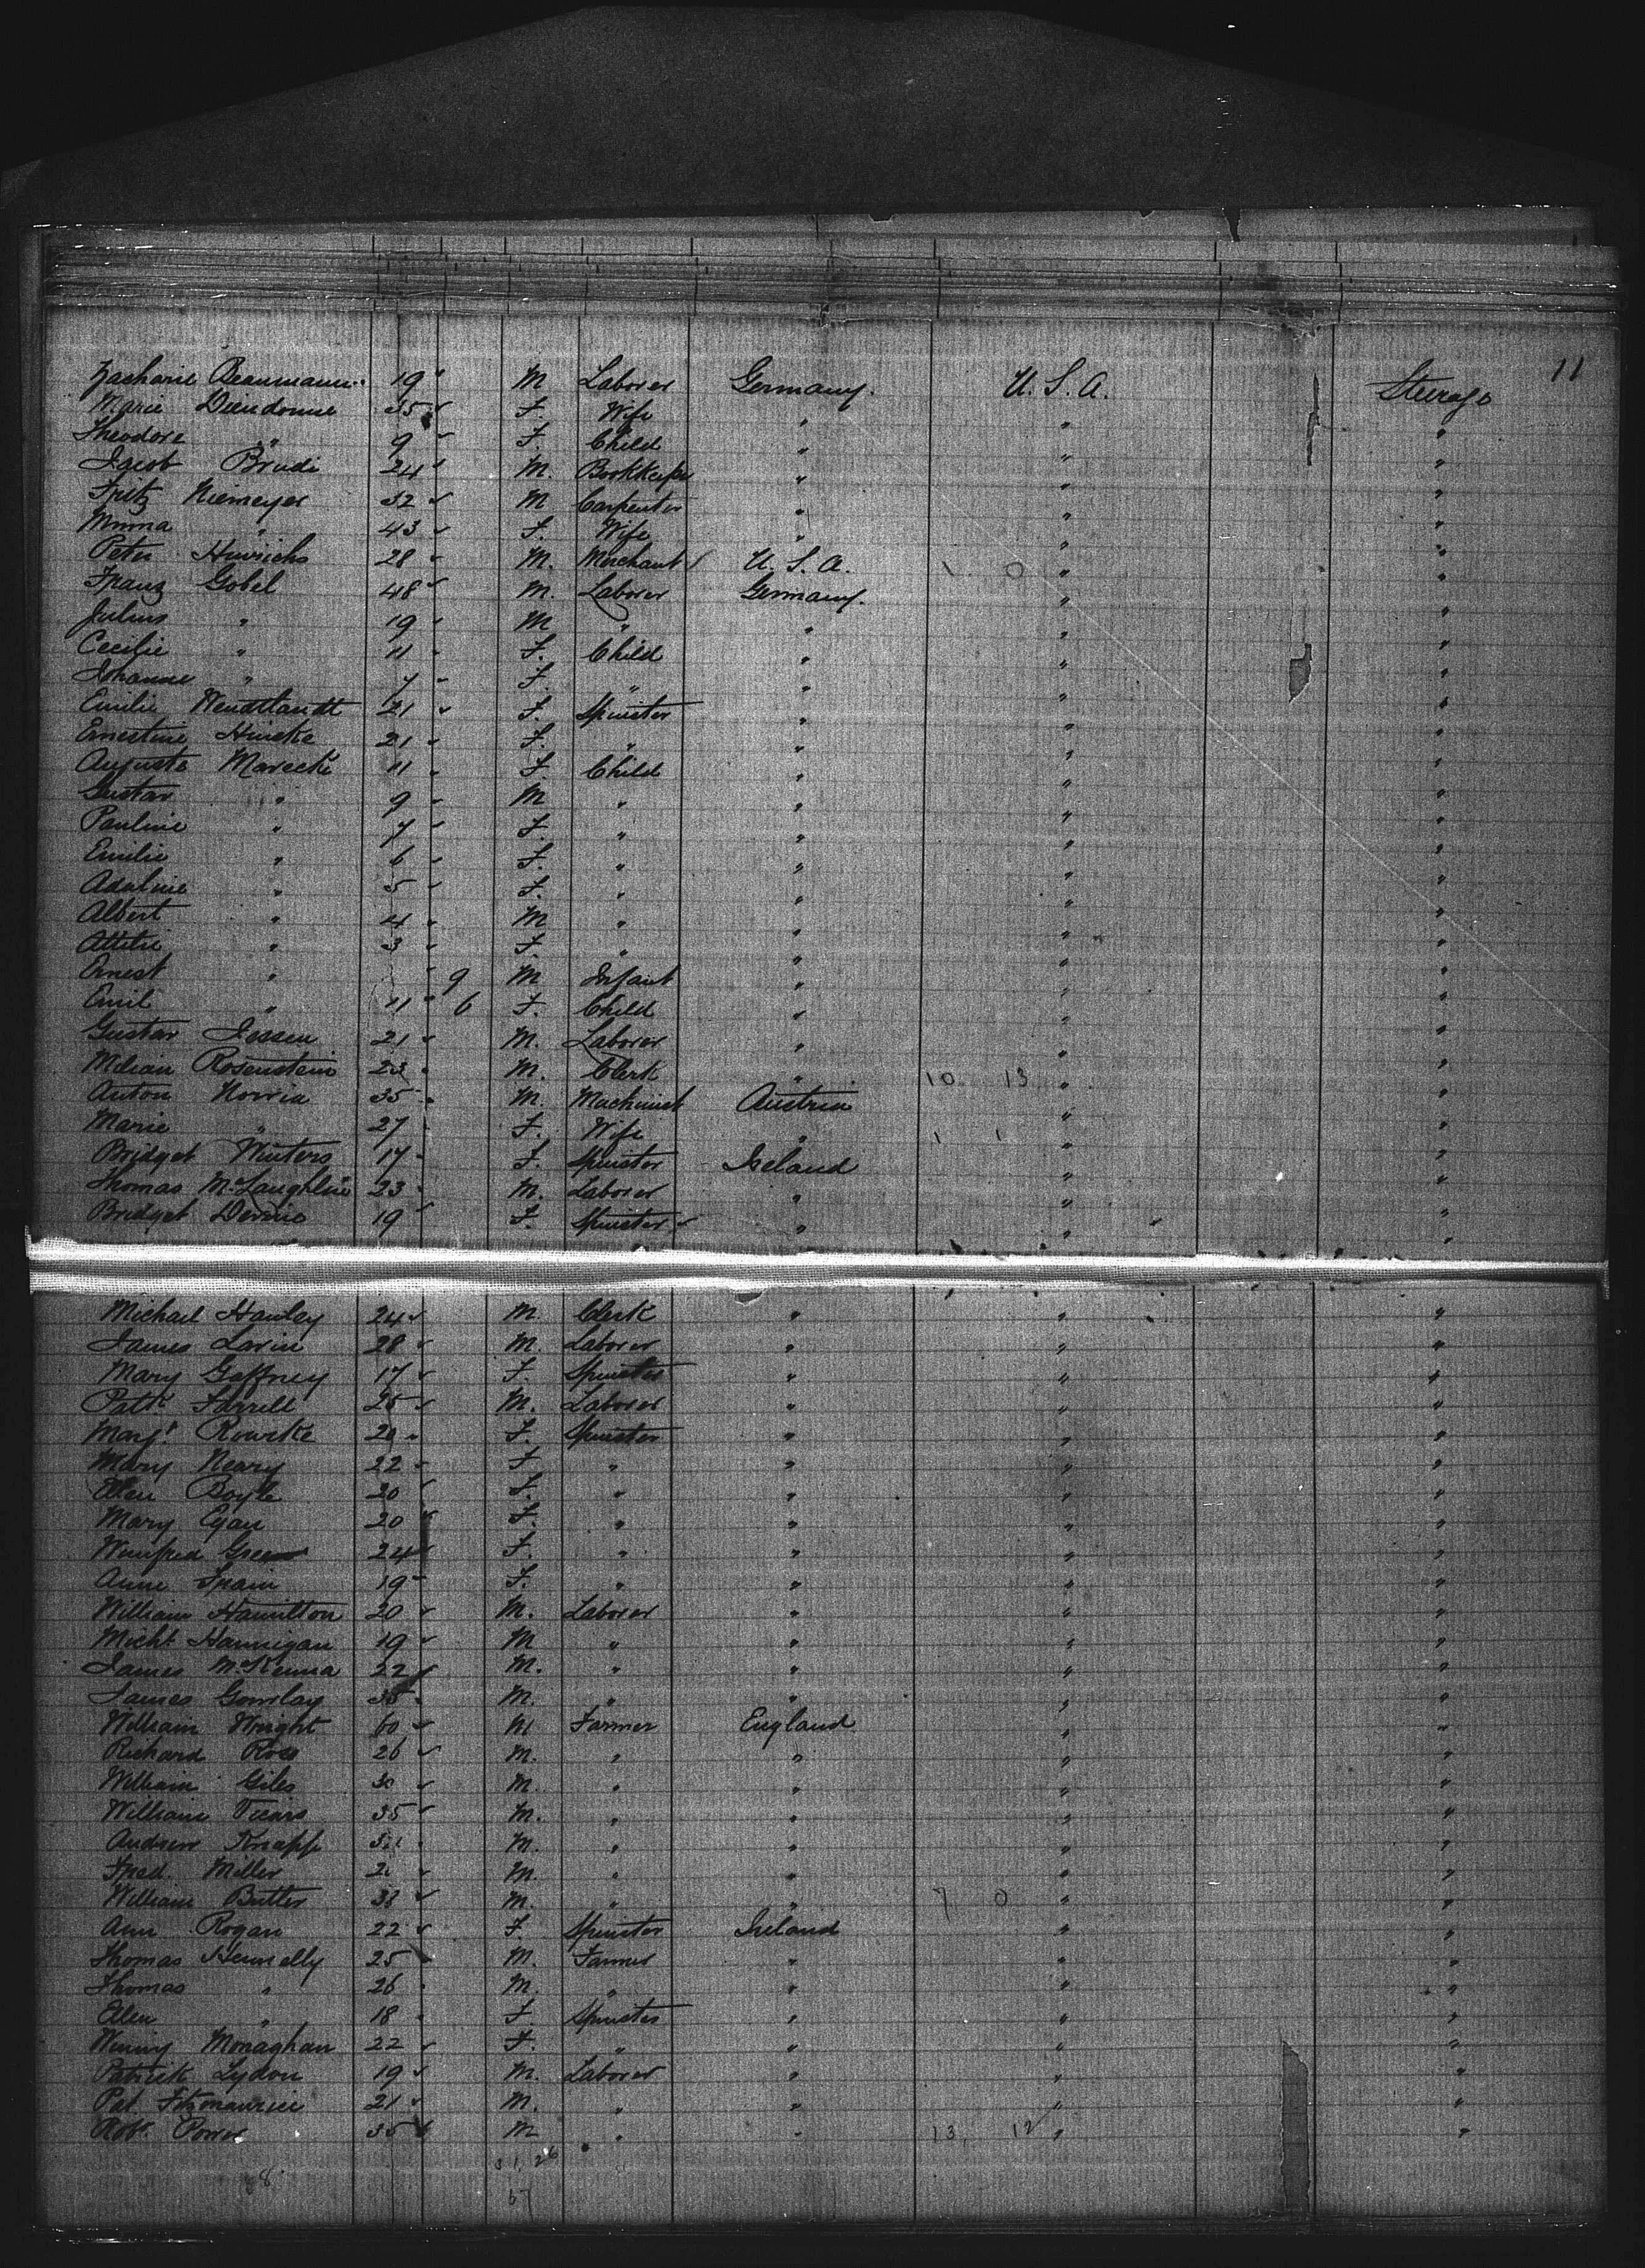 11
Zacharie Beaumann 19 " M Laborer Germany. U. S. A. Steerage
Marie Dieudonne 35 F. Wife " " "
Theodore " 9 F. Child " " "
Jacob Brudi 24 M. Bookkeeper " " "
Fritz Niemeyer 32 M Carpenter " " "
Minna " 43 F. Wife " " "
Peter Hinrichs 28 M. Merchant U. S. A. 1 0 " "
Franz Gobel 48 M. Laborer Germany. " "
Julius " 19 M " " " "
Cecilie " 11 F. Child " " "
Johanne " 7 F. " " " "
Emilie Wendtlandt 21 F. Spinster " " "
Ernestine Hincke 21 F. " " " "
Auguste Marecke 11 F. Child " " "
Gustav " 9 M " " " "
Pauline " 7 F. " " " "
Emilie " 6 F. " " " "
Adaline " 5 F. " " " "
Albert " 4 M " " " "
Attilie " 3 F. " " " "
Ernest " 9 M Infant " " "
Emil " 11 6 F. Child " " "
Gustav Jessen 21 M. Laborer " " "
Milian Rosenstein 23 M. Clerk " 10 13 " "
Anton Norria 35 M. Machinist Austria " "
Marie " 27 F. Wife " 1 1 " "
Bridget Winters 17 F. Spinster Ireland " "
Thomas McLaughlin 23 M. Laborer " " "
Bridget Dennis 19 F. Spinster " " "
Michael Hanley 24 M. Clerk " " "
James Lavin 28 M. Laborer " " "
Mary Gaffney 17 F. Spinster " " "
Patk Farrell 25 M. Laborer " " "
Margt Rourke 20 F. Spinster " " "
Mary Neary 22 F " " " "
Ellen Boyle 20 F. " " " "
Mary Egan 20 F. " " " "
Winifred Green 24 F. " " " "
Anne Spain 19 F. " " " "
William Hamilton 20 M. Laborer " " "
Michl Hannigan 19 M " " " "
James McKenna 22 M. " " " "
James Gourlay 35 M. " " " "
William Wright 60 M Farmer England " "
Richard Ross 26 M. " " " "
William Giles 30 M. " " " "
William Vicars 35 M. " " " "
Andrew Knapp M. " " " "
Fred. Miller M. " " " "
William Butler 38 M. " " 7 0 " "
Ann Rogan 22 F. Spinster Ireland " "
Thomas Hennelly 25 M. Farmer " " "
Thomas " 26 M. " " " "
Ellen " 18 F. Spinster " " "
Winny Monaghan 22 F. " " " "
Patrick Lydon 19 M. Laborer " " "
Pat Fitzmaurice 21 M. " " " "
Robt Power 35 M " " 13, 12 " "
31, 26
8
57